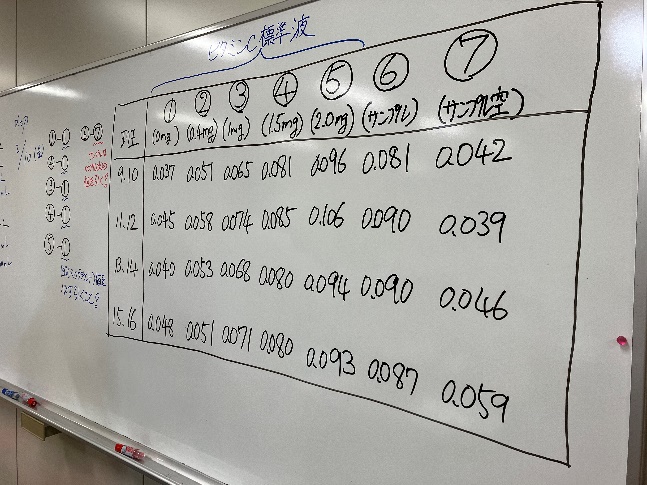 ビタミンC標準液
① ② ③ ④ ⑤ ⑥ ⑦
班 (0mg) (0.4mg) (1mg) (1.5mg) (2.0mg) (サンプル) (サンプル空)
9.10 0.037 0.051 0.065 0.081 0.096 0.081 0.042
11.12 0.045 0.058 0.074 0.085 0.106 0.090 0.039
13.14 0.040 0.053 0.068 0.080 0.094 0.090 0.046
15.16 0.048 0.051 0.071 0.080 0.093 0.087 0.059